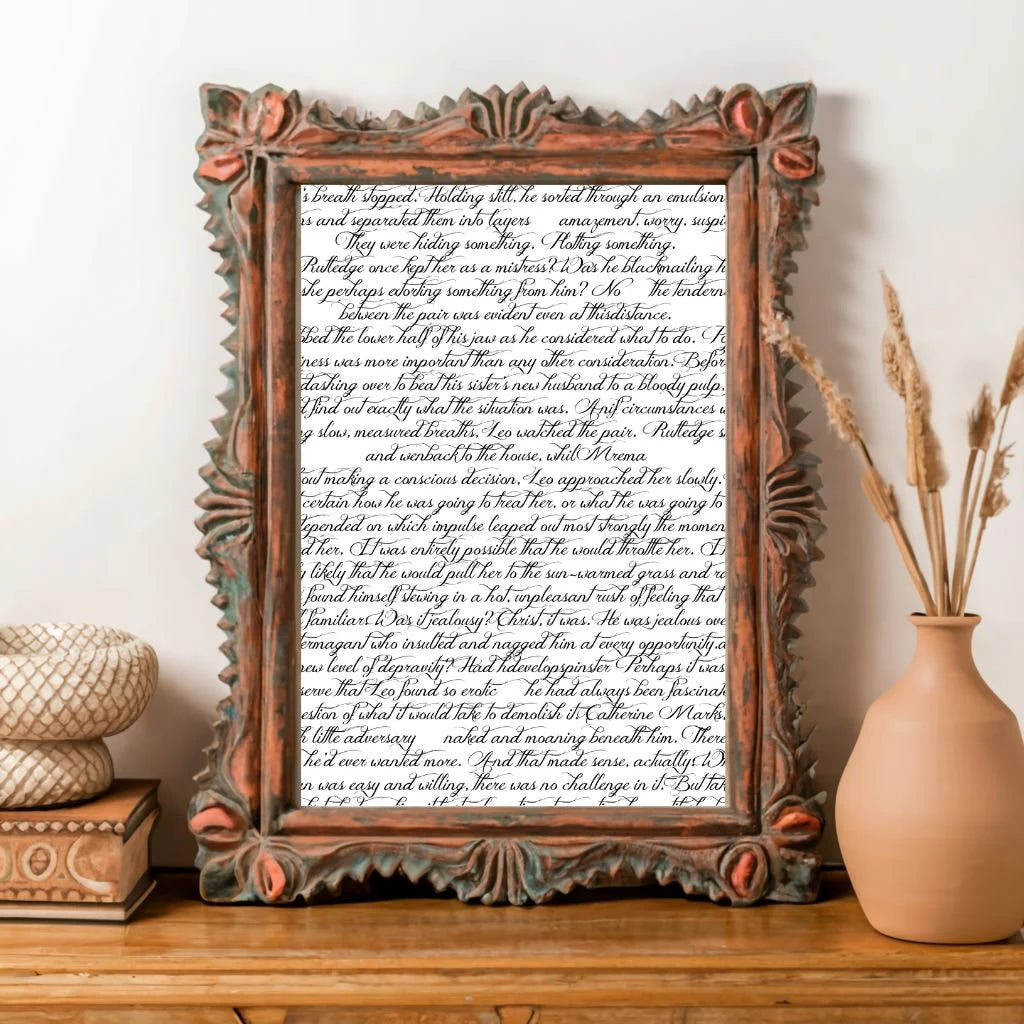 's breath stopped. Holding still, he sorted through an emulsion
ns and separated them into layers amazement, worry, suspi
They were hiding something. Plotting something.
Rutledge once kept her as a mistress? Was he blackmailing h
she perhaps extorting something from him? No the tendern
between the pair was evident even at thisdistance.
bbed the lower half of his jaw as he considered what to do. Po
iness was more important than any other consideration. Befor
dashing over to beat his sister's new husband to a bloody pulp,
d find out exactly what the situation was. Anif circumstances w
ng slow, measured breaths, Leo watched the pair. Rutledge s
and wenback to the house, whil Mrema
out making a conscious decision, Leo approached her slowly.
certain how he was going to treat her, or what he was going to
depended on which impulse leaped out most strongly the momen
d her. It was entirely possible that he would throttle her. It
y likely that he would pull her to the sun-warmed grass and ra
found himself stewing in a hot, unpleasant rush of feeling that
familiars Was it jealousy? Christ, it was. He was jealous ove
ermagant who insulted and nagged him at every opportunity.a
new level of depravity? Had hdevelopspinster Perhaps it was
serve that Leo found so erotic he had always been fascinat
estion of what it would take to demolish it. Catherine Marks,
l little adversary naked and moaning beneath him. There
he'd ever wanted more. And that made sense, actuallys W
n was easy and willing, there was no challenge in it. But tak